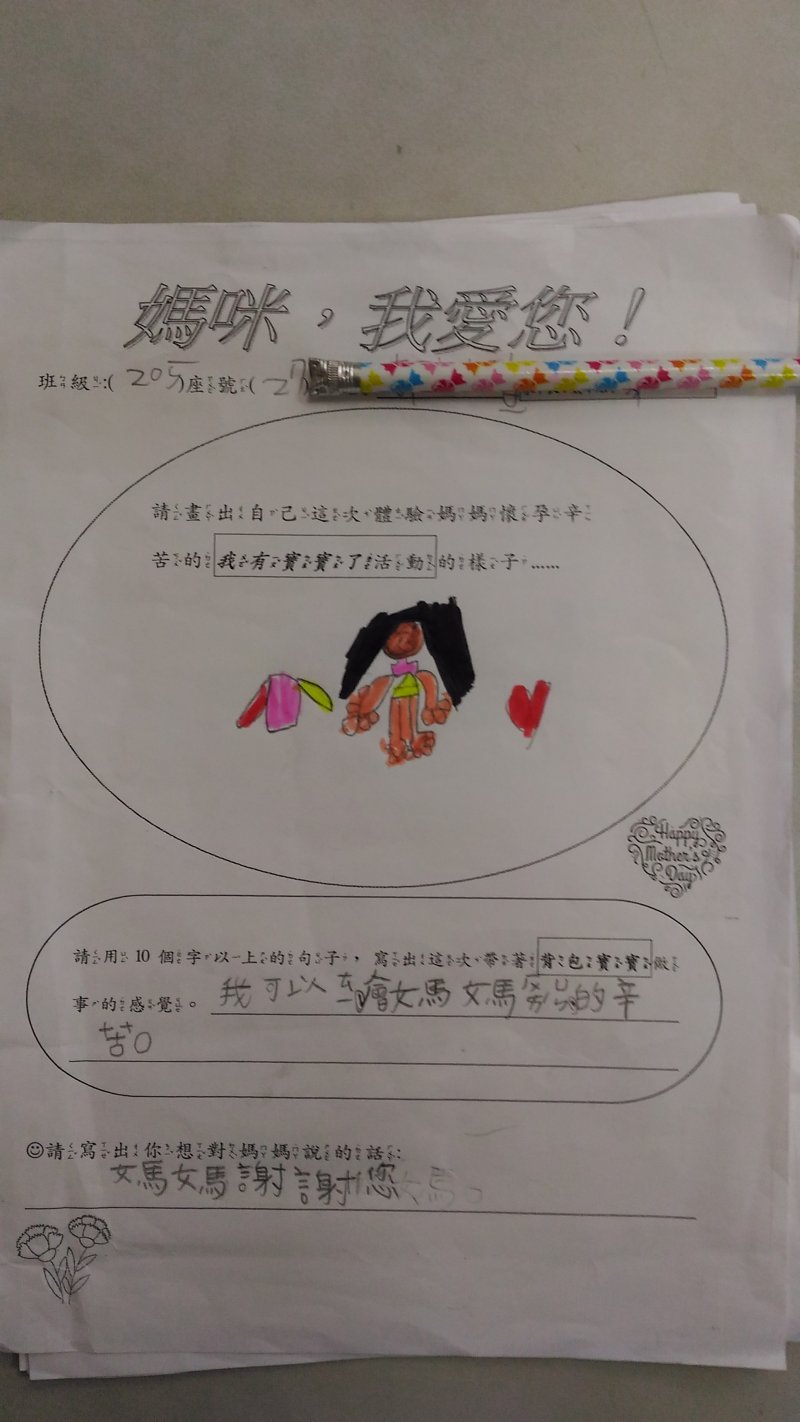 媽咪，我愛您！
班級:( 205)座號(2
請畫出自己這次體驗媽媽懷孕辛
苦的我有寶寶了活動的樣子……
Happy
Mother's
Day
請用 10 個字以上的句子，寫出這次帶著背包寶寶做
事的感覺。我可以 媽媽 的辛
苦。
☺請寫出你想對媽媽說的話:
媽媽謝謝您